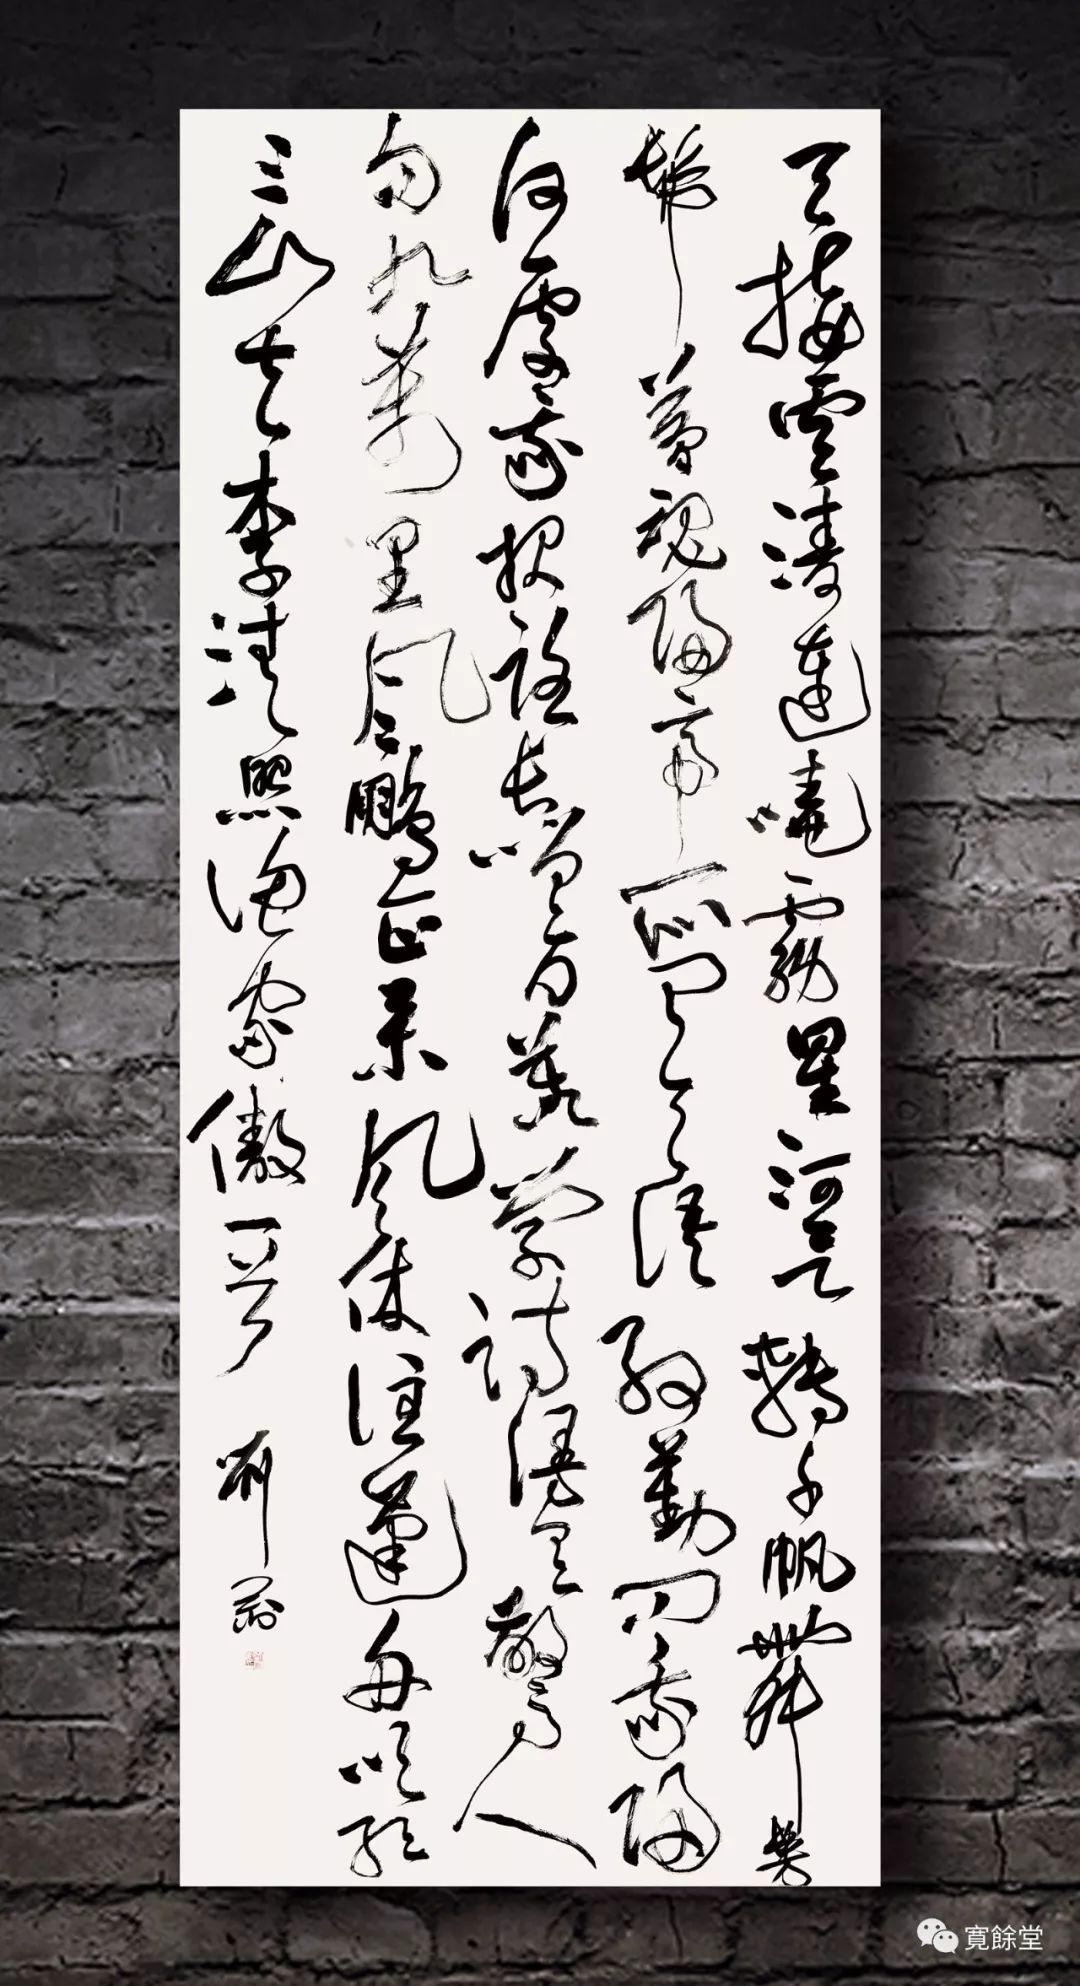 天接雲濤連曉霧星河欲轉千帆舞髣
髴夢魂歸帝所聞天語殷勤問我歸
何處我報路長嗟日暮學詩謾有驚人
句九萬里風鵬正舉風休住蓬舟吹取
三山去李清照漁家傲一首
寬餘堂